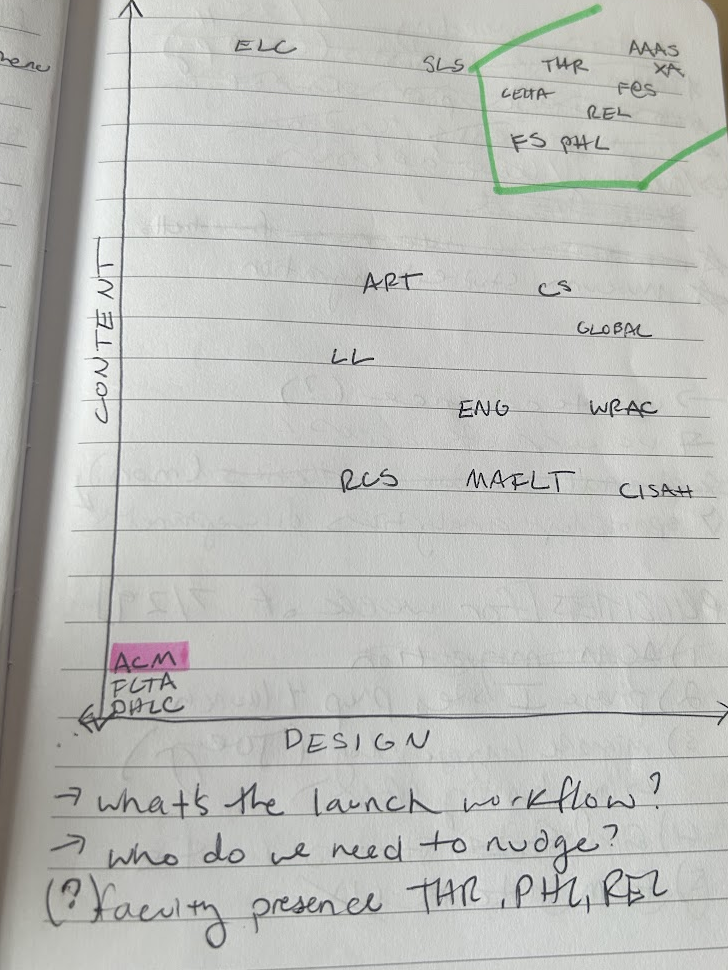 ELC
SLS
THR
AAAS
XA
CELTA
FCS
REL
FS PHL
CONTENT
ART
CS
GLOBAL
LL
ENG
WRAC
RCS
MAFLT
CISAH
ACM
FLTA
DHLC
DESIGN
→ what's the launch workflow?
→ who do we need to nudge?
(?) faculty presence THR, PHL, REL